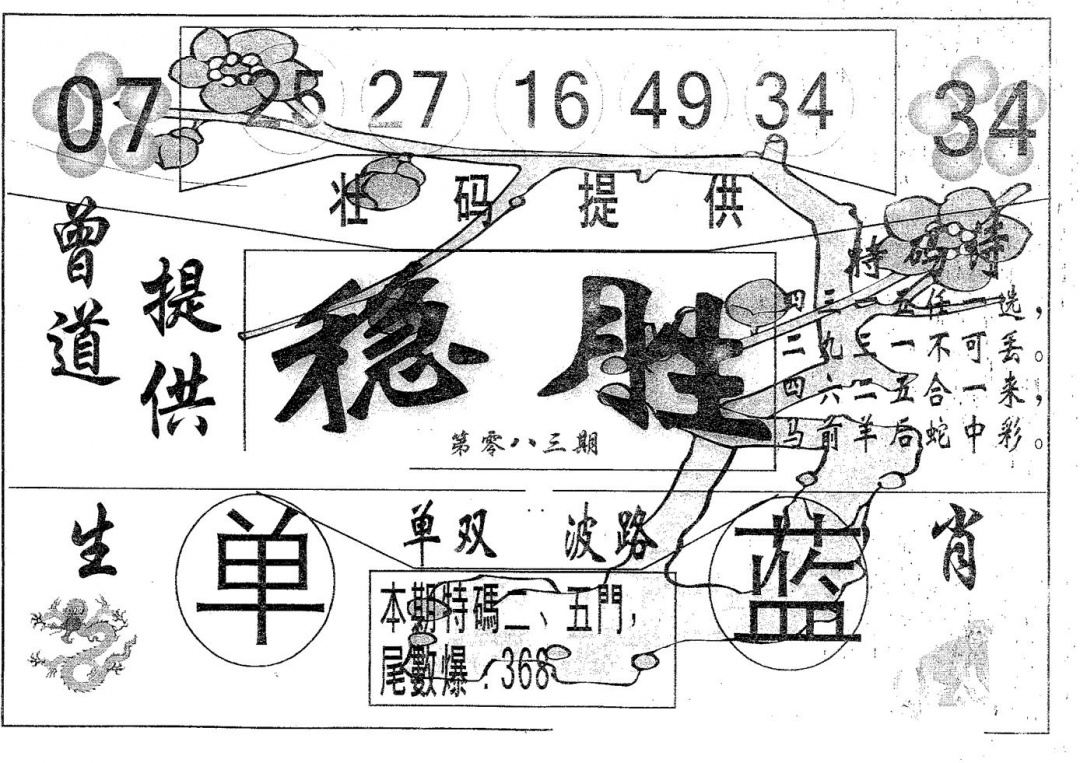 07 25 27 16 49 34 34
壮码提供
曾道
提供
稳胜
第零八三期
特码诗
四三一五任一选，
二九三一不可丢。
四六二五合一来，
马前羊后蛇中彩。
生
单
单双 波路
蓝
肖
本期特碼二、五門，
尾數爆：368